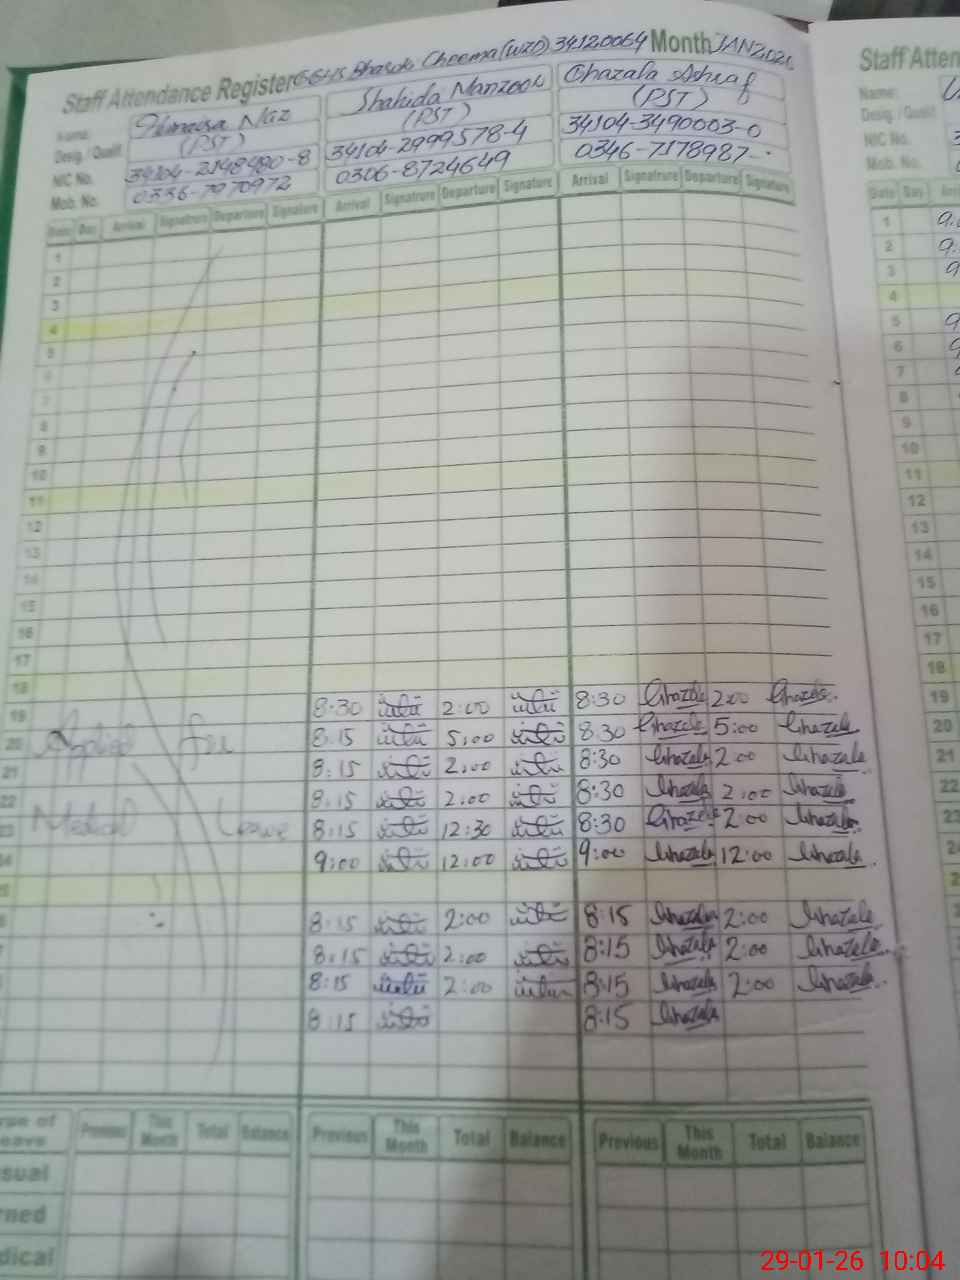 Staff Attendance Register GGHS Bhasoki Cheema (WZD) 34120064 Month JAN 2026
Name: Humaisa Naz Shahida Manzoor Ghazala Ashraf
Desig. / Qualif. (PST) (PST) (PST)
NIC No. 34104-2148980-8 34104-2999578-4 34104-3490003-0
Mob. No. 0336-7970972 0306-8724649 0346-7178987
Date Day Arrival Signature Departure Signature Arrival Signature Departure Signature Arrival Signature Departure Signature
1
2
3
4
5
6
7
8
9
10
11
12
13
14
15
16
17
18
19 8:30 2:00 8:30 Ghazala 2:00 Ghazala
20 Applied for 8:15 5:00 8:30 Ghazala 5:00 Ghazala
21 8:15 2:00 8:30 Ghazala 2:00 Ghazala
22 8:15 2:00 8:30 Ghazala 2:00 Ghazala
23 Medical Leave 8:15 12:30 8:30 Ghazala 2:00 Ghazala
9:00 12:00 9:00 Ghazala 12:00 Ghazala
8:15 2:00 8:15 Ghazala 2:00 Ghazala
8:15 2:00 8:15 Ghazala 2:00 Ghazala
8:15 2:00 8:15 Ghazala 2:00 Ghazala
8:15 8:15 Ghazala
Previous This Month Total Balance Previous This Month Total Balance Previous This Month Total Balance
Staff Atten
Name:
Desig. / Qualif
NIC No.
Mob. No.
Date Day
1
2
3
4
5
6
7
8
9
10
11
12
13
14
15
16
17
18
19
20
21
22
29-01-26 10:04